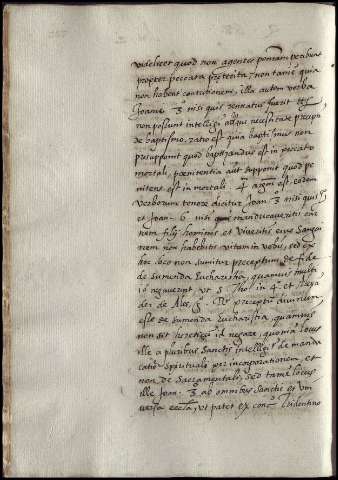 videlicet quod non agentes poenam peribunt
propter peccata preterita, non tamen quia
non habent contritionem, illa autem verba
Joanis 3 nisi quis renatus fuerit
non possunt intelligi absque necessitate precepti
de baptismo. ratio est quia baptismus non
presuponit quod baptizandus est in peccato
mortali, poenitentia aut supponit quod pe
nitens est in mortali. 4 argum. est. eodem
verborum tenore dicitur Joan. 3 nisi quis
et Joan. 6 nisi manducaveritis car
nem filij hominis et biveritis eius sangui
nem non habebitis vitam in vobis, sed ex
hoc loco non sumitur preceptum de fide
de sumenda Eucharistia, quamvis multi
id negaverunt, ut S. Tho. in 4 et Alexa
der de Ales, preceptum divinum
esse de sumenda Eucharistia, quamvis
non sit hereticum id negare, quoniam locus
ille a pluribus Sanctis intelligitur de mandu
catione Spirituali per incorporationem, et
non de Sacramentali, sed tamen locus
ille Joan. 3 ab omnibus Sanctis et uni
versa eccla, ut patet ex conc. Tridentino